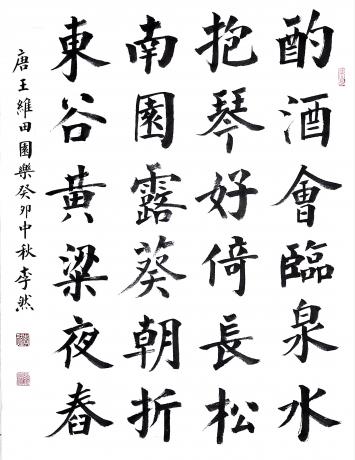 酌酒會臨泉水
抱琴好倚長松
南園露葵朝折
東谷黃粱夜舂
唐王維田園樂癸卯中秋李然